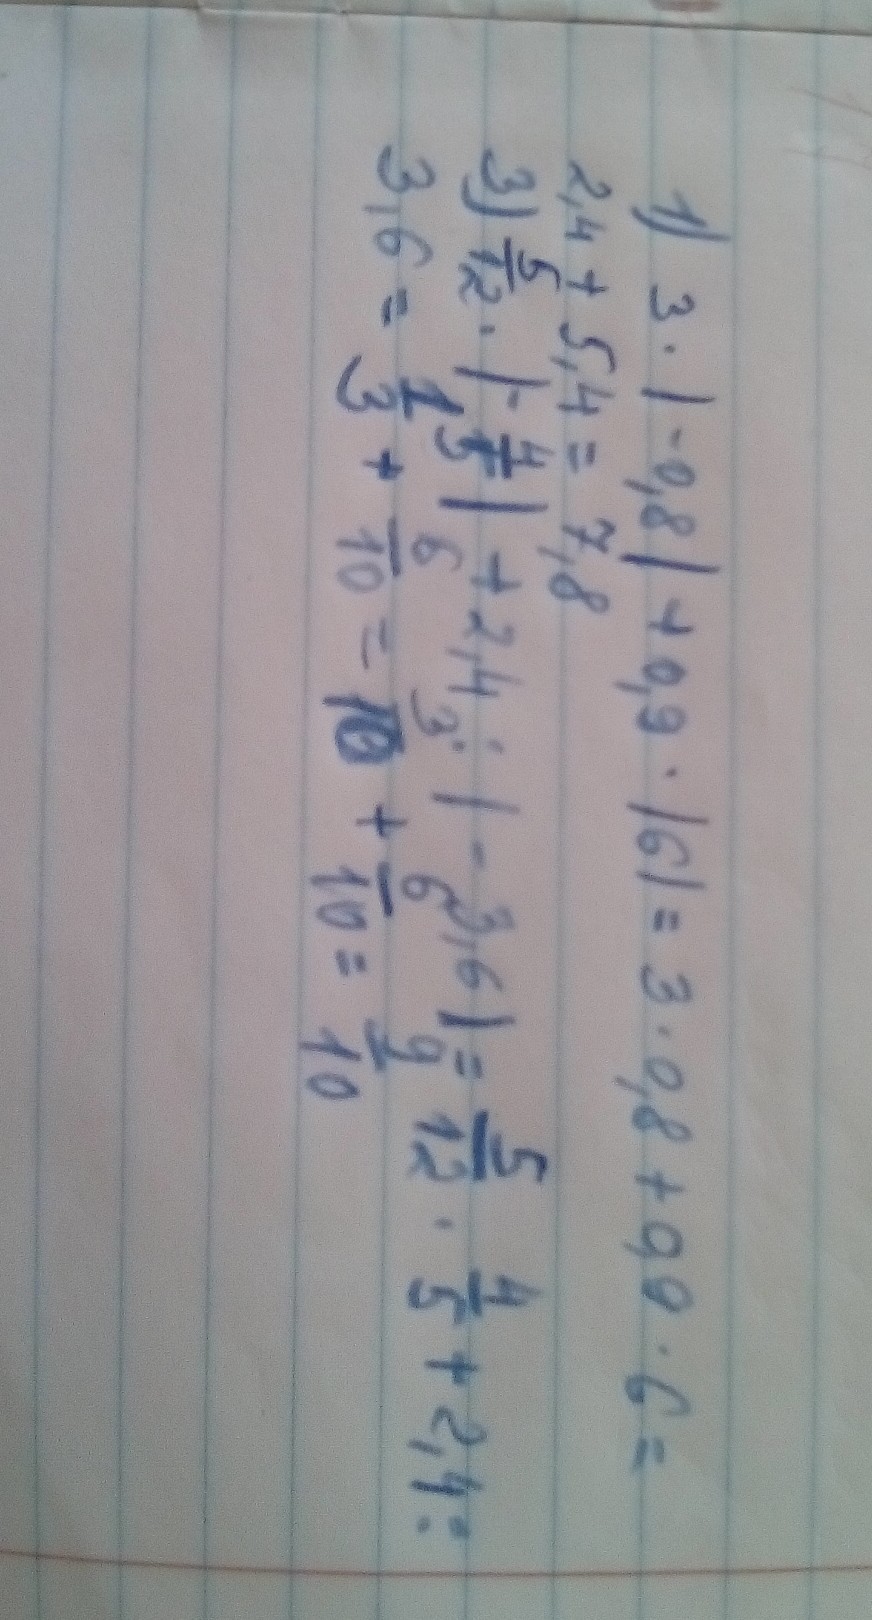 1) 3 · |-0,8| + 0,9 · |6| = 3 · 0,8 + 0,9 · 6 =
2,4 + 5,4 = 7,8
3) 5/12 · |-4/5| + 2,4 : |-3,6| = 5/12 · 4/5 + 2,4 :
3,6 = 1/3 + 6/10 = 3/10 + 6/10 = 9/10